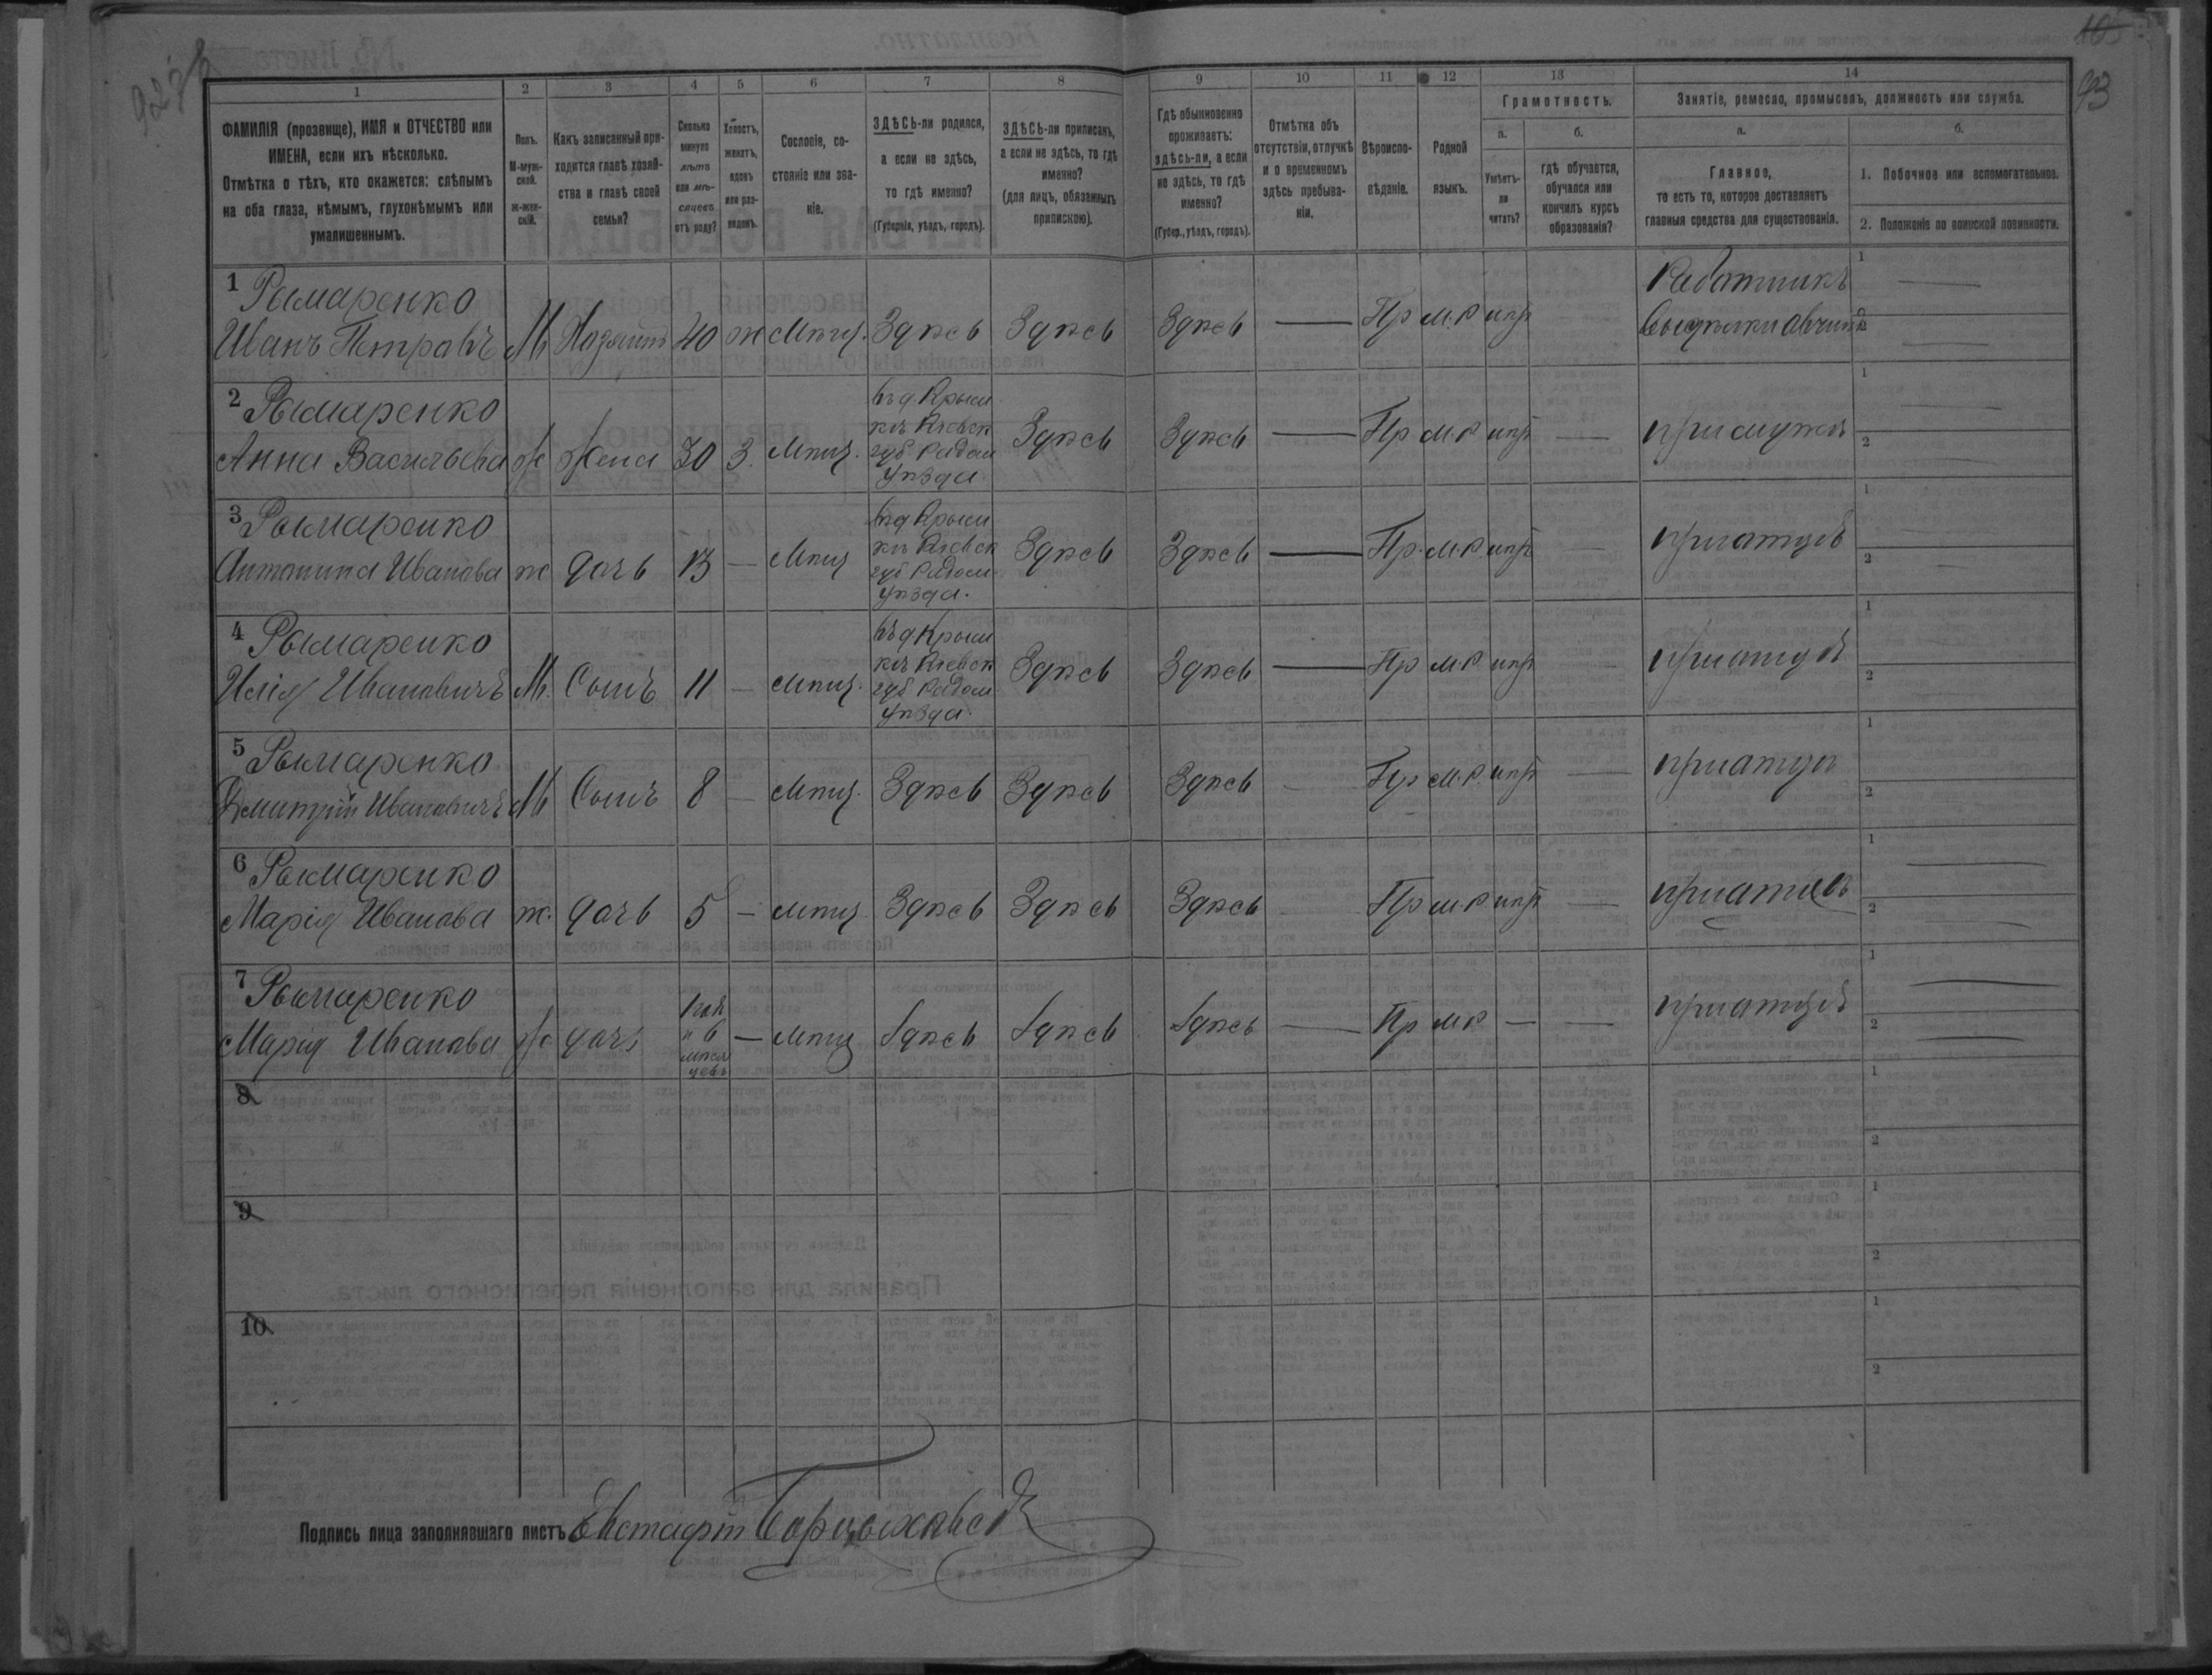 93
1
2
3
4
5
6
7
8
9
10
11
12
13
14
ФАМИЛІЯ (прозвище), ИМЯ и ОТЧЕСТВО или ИМЕНА, если ихъ нѣсколько.
Отмѣтка о тѣхъ, кто окажется: слѣпымъ на оба глаза, нѣмымъ, глухонѣмымъ или умалишеннымъ.
Полъ.
М-мужской.
Ж-женскій.
Какъ записанный приходится главѣ хозяйства и главѣ своей семьи?
Сколько минуло лѣтъ или мѣсяцевъ отъ роду?
Холостъ, женатъ, вдовъ или разведенъ.
Сословіе, состояніе или званіе.
ЗДѢСЬ-ли родился, а если не здѣсь, то гдѣ именно?
(Губернія, уѣздъ, городъ).
ЗДѢСЬ-ли приписанъ, а если не здѣсь, то гдѣ именно?
(для лицъ, обязанныхъ припискою).
Гдѣ обыкновенно проживаетъ: здѣсь-ли, а если не здѣсь, то гдѣ именно?
(Губер., уѣздъ, городъ).
Отмѣтка объ отсутствіи, отлучкѣ и о временномъ здѣсь пребываніи.
Вѣроисповѣданіе.
Родной языкъ.
Грамотность.
а.
б.
Умѣетъ-ли читать?
гдѣ обучается, обучался или кончилъ курсъ образованія?
Занятіе, ремесло, промыселъ, должность или служба.
а.
б.
Главное,
то есть то, которое доставляетъ главныя средства для существованія.
1. Побочное или вспомогательное.
2. Положеніе по воинской повинности.
1 Рымаренко
Иванъ Петровъ М Хозяинъ 40 ж мѣщ. Здѣсь Здѣсь Здѣсь — Пр м.р. — Работникъ
2 Рымаренко
Анна Васильева Ж Жена 30 З. мѣщ. въ д. Крым
кѣ Кіевск
губ Радом
уѣзда Здѣсь Здѣсь — Пр м.р. — при мужѣ
3 Рымаренко
Антонина Иванова ж дочь 13 — мѣщ въ д Крым
кѣ Кіевск
губ Радом
уѣзда. Здѣсь Здѣсь — Пр. м.р. — при отцѣ
4 Рымаренко
Илія Ивановичъ М. Сынъ 11 — мѣщ. въ д Крым
кѣ Кіевск
губ Радом
уѣзда. Здѣсь Здѣсь — Пр м.р. — при отцѣ
5 Рымаренко
Дмитрій Ивановичъ М Сынъ 8 — мѣщ. Здѣсь Здѣсь Здѣсь — Пр м.р. — при отцѣ
6 Рымаренко
Марія Иванова ж. дочь 5 — мѣщ. Здѣсь Здѣсь Здѣсь Пр м.р. — при отцѣ
7 Рымаренко
Марія Иванова Ж дочь
и 6
мѣся
цевъ — мѣщ Здѣсь Здѣсь Здѣсь — Пр м р — — при отцѣ
8
9
10
Подпись лица заполнявшаго листъ Евстафій